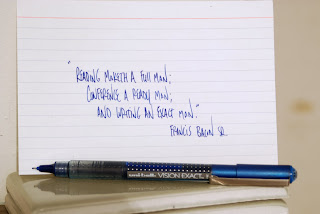 "READING MAKETH A FULL MAN;
CONFERENCE A READY MAN;
AND WRITING AN EXACT MAN."
FRANCIS BACON SR.
uni-ball VISION EXACT